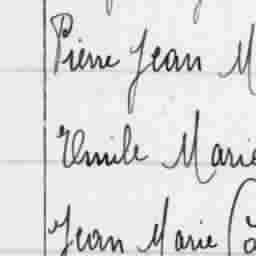 Pierre Jean M
Emile Marie
Jean Marie (